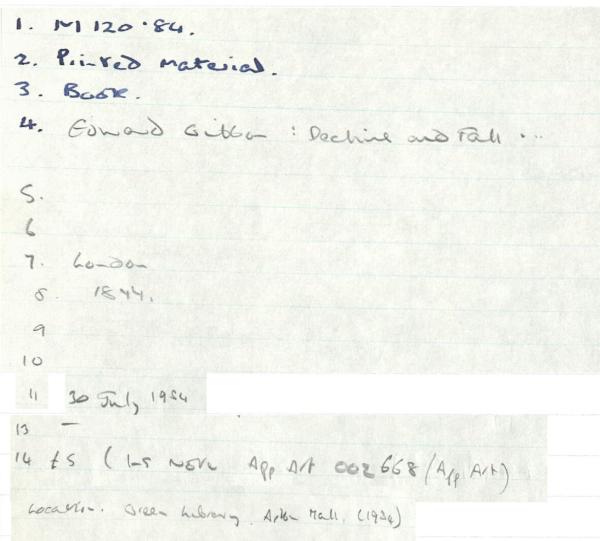 1. M 120.84.
2. Printed Material.
3. Book.
4. Edward Gibbon : Decline and Fall ...
5.
6
7. London
8. 1844.
9
10
11 30 July 1984
13 —
14 £5 ( Note App Art 002668 (App Art)
Location. Green Library. Hall. (1984)